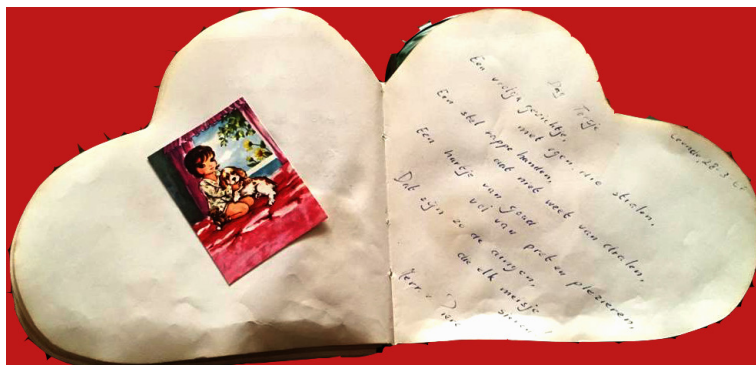 Dag Toosje
Leuven, 28.3.6
Een vrolijk gezichtje,
met ogen die stralen,
Een stel rappe handen,
dat niet weet van dralen,
Een hartje van goud
vol van pret en plezieren,
Dat zijn zo de dingen,
die elk meisje